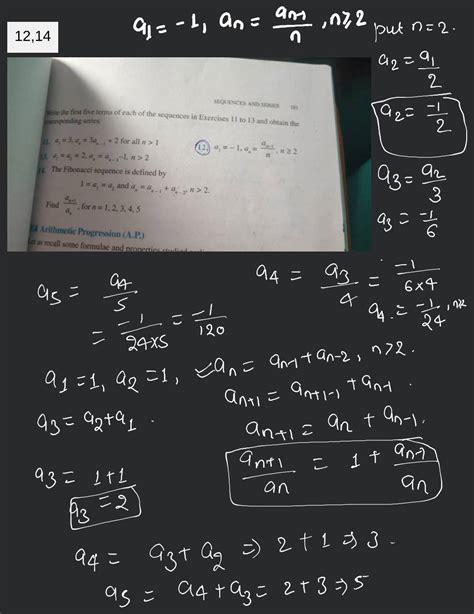 12,14
a₁ = -1, aₙ = aₙ₋₁/n, n≥2
put n=2.
a₂ = a₁/2
a₂ = -1/2
a₃ = a₂/3
a₃ = -1/6
SEQUENCES AND SERIES
Write the first five terms of each of the sequences in Exercises 11 to 13 and obtain the
corresponding series:
11. a₁ = 3, aₙ = 3aₙ₋₁ + 2 for all n > 1
12. a₁ = -1, aₙ = aₙ₋₁/n, n ≥ 2
13. a₁ = a₂ = 2, aₙ = aₙ₋₁ -1, n > 2
14. The Fibonacci sequence is defined by
1 = a₁ = a₂ and aₙ = aₙ₋₁ + aₙ₋₂, n > 2.
Find aₙ₊₁/aₙ, for n = 1, 2, 3, 4, 5
Arithmetic Progression (A.P.)
Let us recall some formulae and properties studied
a₄ = a₃/4 = -1/(6×4)
a₄ = -1/24,
a₅ = a₄/5
= -1/(24×5) = -1/120
a₁=1, a₂=1, aₙ = aₙ₋₁+aₙ₋₂, n>2.
aₙ₊₁ = aₙ₊₁₋₁ + aₙ₋₁.
a₃ = a₂+a₁.
aₙ₊₁ = aₙ + aₙ₋₁.
aₙ₊₁/aₙ = 1 + aₙ₋₁/aₙ
a₃ = 1+1
a₃ = 2
a₄ = a₃+a₂ ⇒ 2+1 ⇒ 3.
a₅ = a₄+a₃ = 2+3 ⇒ 5